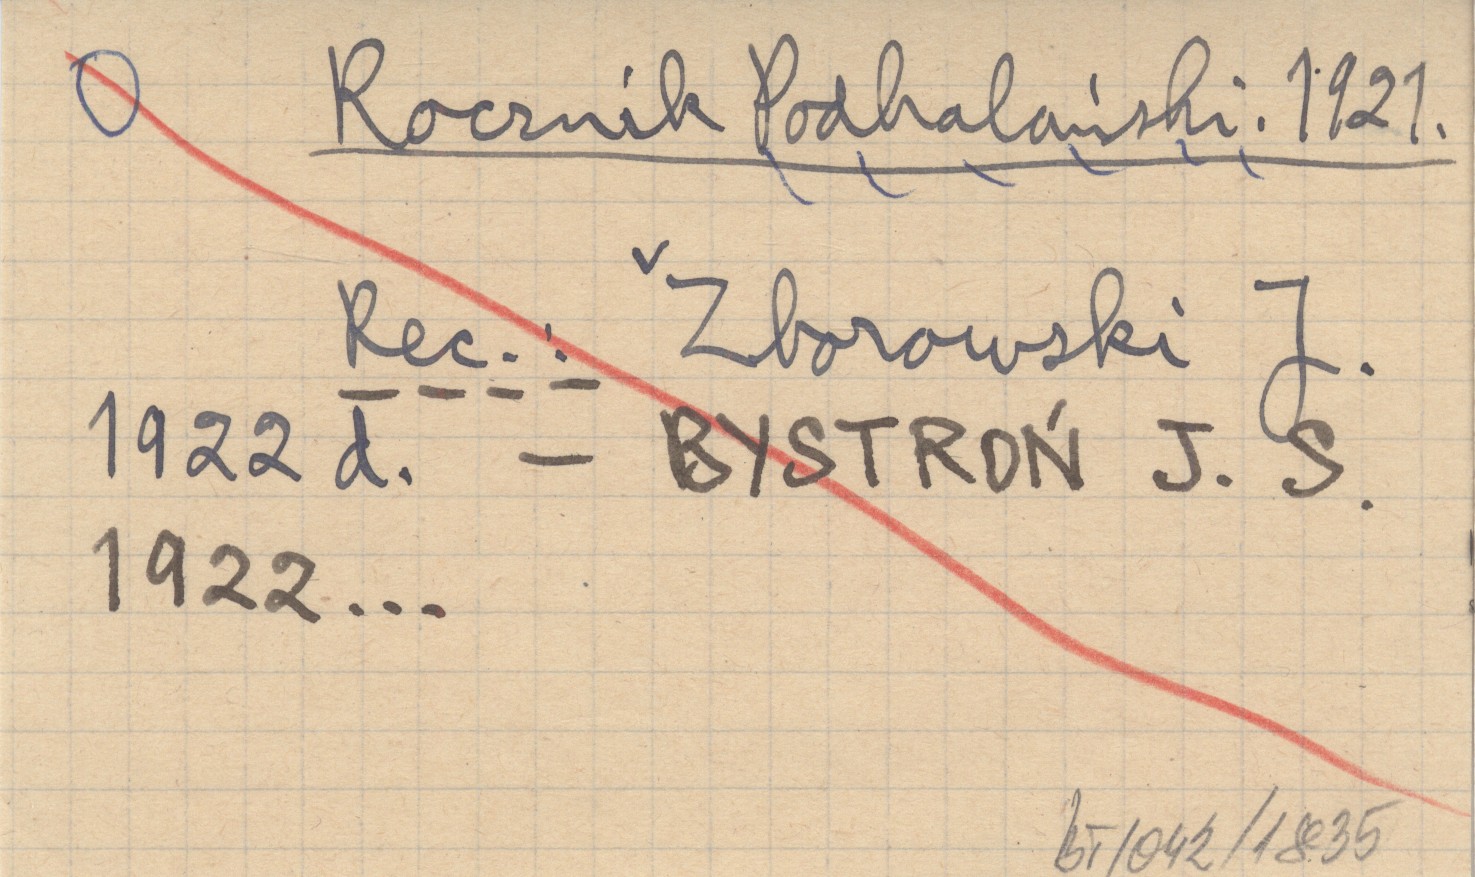 Rocznik Podhalański. 1921.
Rec.: Zborowski J.
1922 d. – BYSTROŃ J. S.
1922...
BT/042/1835